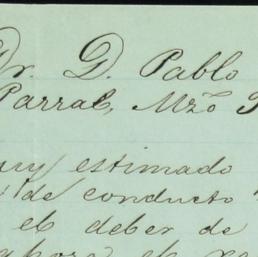 Dr. D. Pablo
Parral, Mzo
muy estimado
de conducto
el deber de
ahora el